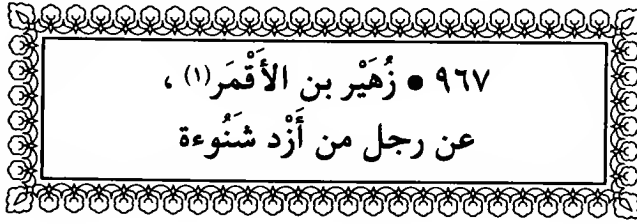 ٩٦٧ • زُهَيْر بن الأَقْمَر(١) ،
عن رجل من أَزْد شَنُوءة